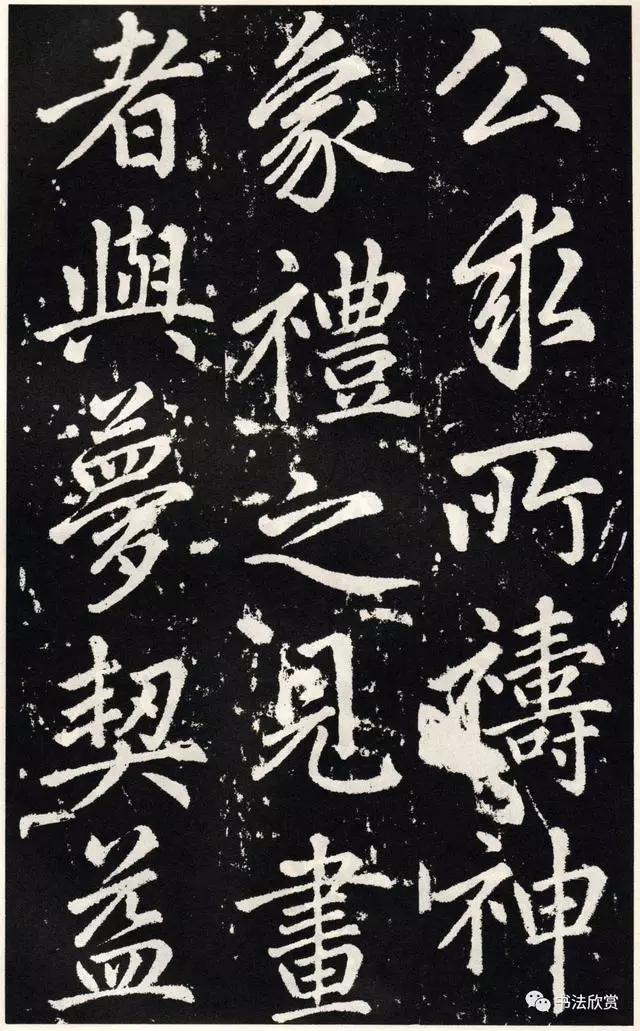 公求所禱神
象禮之見畫
者與夢契益
书法欣赏